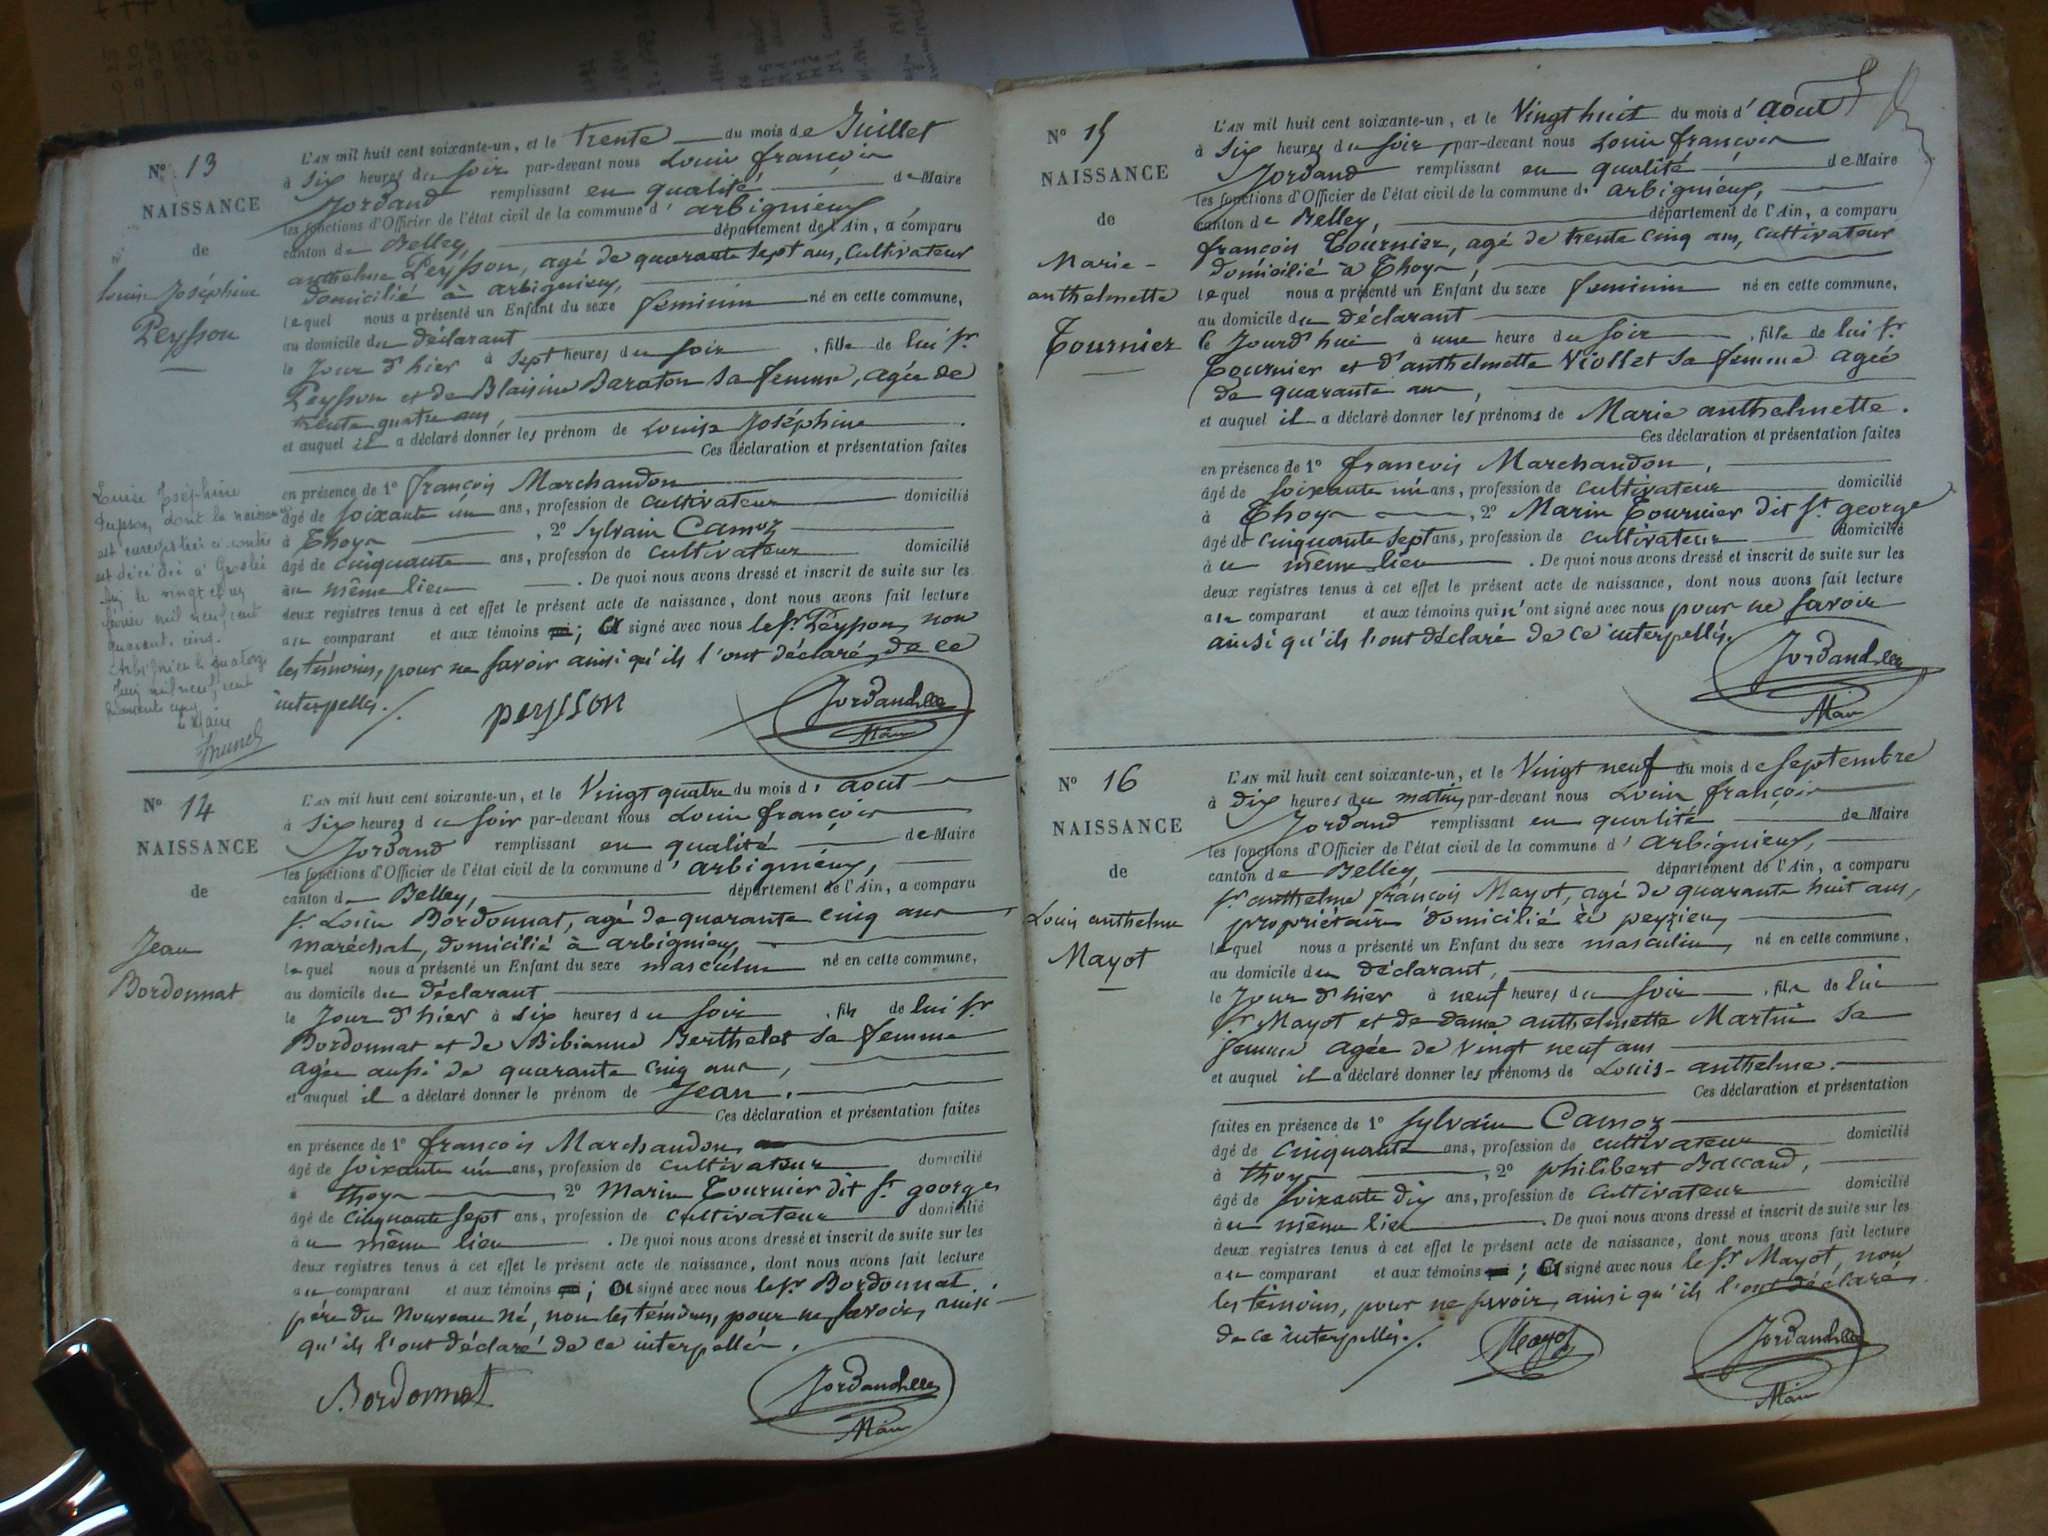 N° 13
NAISSANCE
de
Louise Joséphine
Peysson
L'AN mil huit cent soixante-un, et le trente du mois de Juillet
à six heures du soir par-devant nous Louis françois
Jordand remplissant en qualité de Maire
les fonctions d'Officier de l'état civil de la commune d' arbignieux,
canton de Belley, département de l'Ain, a comparu
anthelme Peysson, agé de quarante sept ans, Cultivateur
domicilié à arbignieux,
lequel nous a présenté un Enfant du sexe feminin né en cette commune,
au domicile du déclarant
le Jour d'hier à sept heures du soir, fille de lui Sr
Peysson et de Blaisine Baraton sa femme, agée de
trente quatre ans,
et auquel il a déclaré donner les prénom de Louise Joséphine
Ces déclaration et présentation faites
en présence de 1° françois Marchandon
âgé de soixante un ans, profession de cultivateur domicilié
à Thoys, 2° Sylvain Camoz
âgé de cinquante ans, profession de cultivateur domicilié
au même lieu. De quoi nous avons dressé et inscrit de suite sur les
deux registres tenus à cet effet le présent acte de naissance, dont nous avons fait lecture
au comparant et aux témoins ; Et signé avec nous le Sr Peysson, non
les témoins, pour ne savoir ainsi qu'ils l'ont déclaré de ce
interpellés./.
peysson
Jordand
Maire
Louise Joséphine
Peysson, dont la naissance
est enregistrée ci-contre
est décédée à Groslée
le vingt et un
février mil neuf cent
quarante cinq.
Arbignieu le quatorze
Juin mil neuf cent
quarante cinq
Le Maire
N° 14
NAISSANCE
de
Jean
Bordonnat
L'AN mil huit cent soixante-un, et le Vingt quatre du mois d' aout
à six heures du soir par-devant nous Louis françois
Jordand remplissant en qualité de Maire
les fonctions d'Officier de l'état civil de la commune d' arbignieux,
canton de Belley, département de l'Ain, a comparu
Sr Louis Bordonnat, agé de quarante cinq ans
maréchal, domicilié à arbignieux,
lequel nous a présenté un Enfant du sexe masculin né en cette commune,
au domicile du déclarant
le Jour d'hier à six heures du soir, fils de lui Sr
Bordonnat et de Bibianne Berthelet sa femme
agée aussi de quarante cinq ans,
et auquel il a déclaré donner le prénom de Jean.
Ces déclaration et présentation faites
en présence de 1° françois Marchandon
âgé de soixante un ans, profession de cultivateur domicilié
à thoys, 2° Marin Tournier dit St george
âgé de cinquante sept ans, profession de cultivateur domicilié
au même lieu. De quoi nous avons dressé et inscrit de suite sur les
deux registres tenus à cet effet le présent acte de naissance, dont nous avons fait lecture
au comparant et aux témoins ; Et signé avec nous le Sr Bordonnat
père du nouveau né, non les témoins, pour ne savoir, ainsi
qu'ils l'ont déclaré de ce interpellés.
Bordonnat
Jordand
Maire
N° 15
NAISSANCE
de
Marie-
anthelmette
Tournier
L'AN mil huit cent soixante-un, et le Vingt huit du mois d' aout
à six heures du soir, par-devant nous Louis françois
Jordand remplissant en qualité de Maire
les fonctions d'Officier de l'état civil de la commune d' arbignieux,
canton de Belley, département de l'Ain, a comparu
françois Tournier, agé de trente cinq ans, cultivateur
domicilié à Thoys,
lequel nous a présenté un Enfant du sexe feminin né en cette commune,
au domicile du déclarant
le Jourd'hui à une heure du soir, fille de lui Sr
Tournier et d'anthelmette Viollet sa femme agée
de quarante ans,
et auquel il a déclaré donner les prénoms de Marie anthelmette.
Ces déclaration et présentation faites
en présence de 1° francois Marchandon,
âgé de soixante un ans, profession de cultivateur domicilié
à Thoys, 2° Marin Tournier dit St george
âgé de cinquante sept ans, profession de cultivateur domicilié
au même lieu. De quoi nous avons dressé et inscrit de suite sur les
deux registres tenus à cet effet le présent acte de naissance, dont nous avons fait lecture
au comparant et aux témoins qui n'ont signé avec nous pour ne savoir
ainsi qu'ils l'ont déclaré de ce interpellés.
Jordand
Maire
N° 16
NAISSANCE
de
Louis anthelme
Mayot
L'AN mil huit cent soixante-un, et le Vingt neuf du mois de septembre
à dix heures du matin, par-devant nous Louis françois
Jordand remplissant en qualité de Maire
les fonctions d'Officier de l'état civil de la commune d' arbignieux,
canton de Belley, département de l'Ain, a comparu
Sr anthelme françois Mayot, agé de quarante huit ans,
propriétaire domicilié à peyzieu,
lequel nous a présenté un Enfant du sexe masculin, né en cette commune,
au domicile du déclarant,
le Jour d'hier à neuf heures du soir, fils de lui
Sr Mayot et de dame anthelmette Martin sa
femme agée de vingt neuf ans
et auquel il a déclaré donner les prénoms de Louis-anthelme.
Ces déclaration et présentation
faites en présence de 1° Sylvain Camoz
âgé de cinquante ans, profession de cultivateur domicilié
à thoys, 2° philibert Baccard,
âgé de soixante dix ans, profession de cultivateur domicilié
au même lieu. De quoi nous avons dressé et inscrit de suite sur les
deux registres tenus à cet effet le présent acte de naissance, dont nous avons fait lecture
au comparant et aux témoins ; Et signé avec nous le Sr Mayot, non
les témoins, pour ne savoir, ainsi qu'ils l'ont déclaré
de ce interpellés./.
Mayot
Jordand
Maire